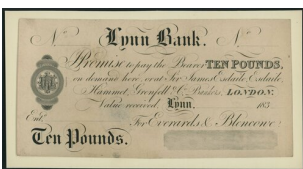 No Lynn Bank. No
I Promise to pay the Bearer TEN POUNDS,
on demand here, or at Sir James Esdaile, Esdaile,
Hammet, Grenfell & Co. Bankers, LONDON.
Value received, Lynn, 183
Ent. For Everards & Blencowe
Ten Pounds.